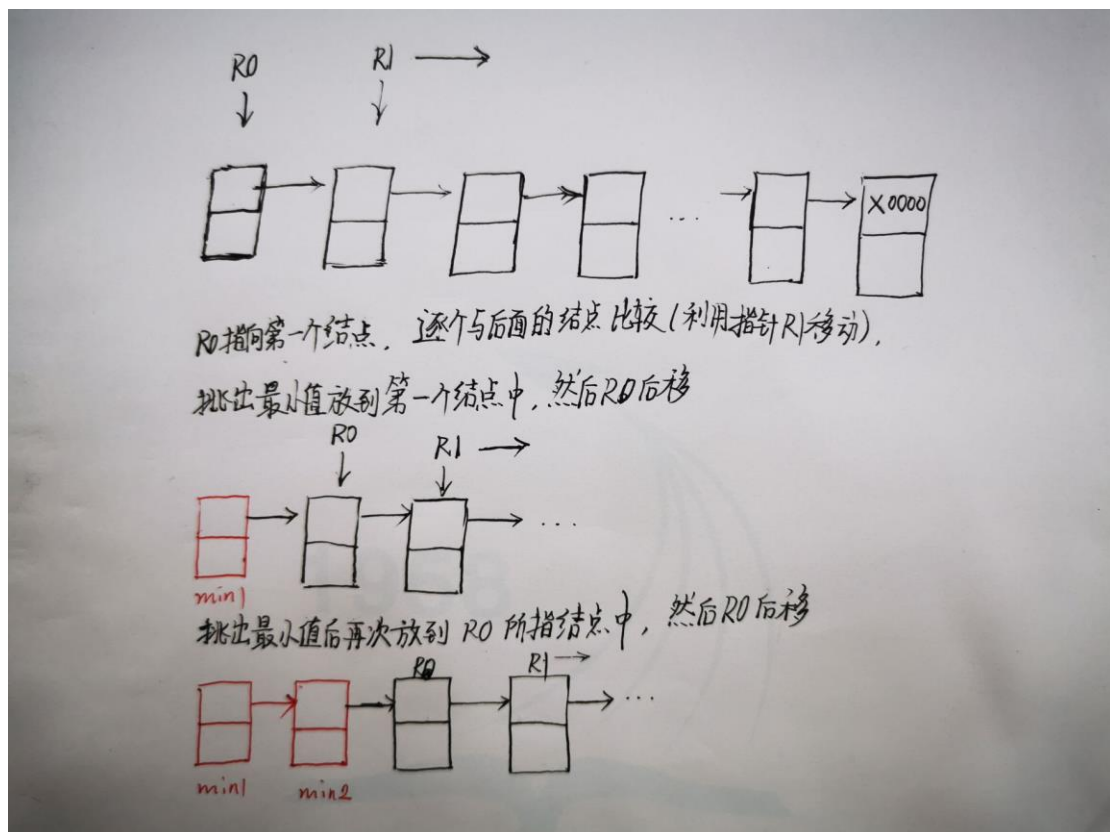 R0 R1
X0000
...
R0指向第一个结点，逐个与后面的结点比较(利用指针R1移动)，
挑出最小值放到第一个结点中，然后R0后移
R0 R1
...
min1
挑出最小值后再次放到 R0 所指结点中，然后R0后移
R0 R1
...
min1 min2